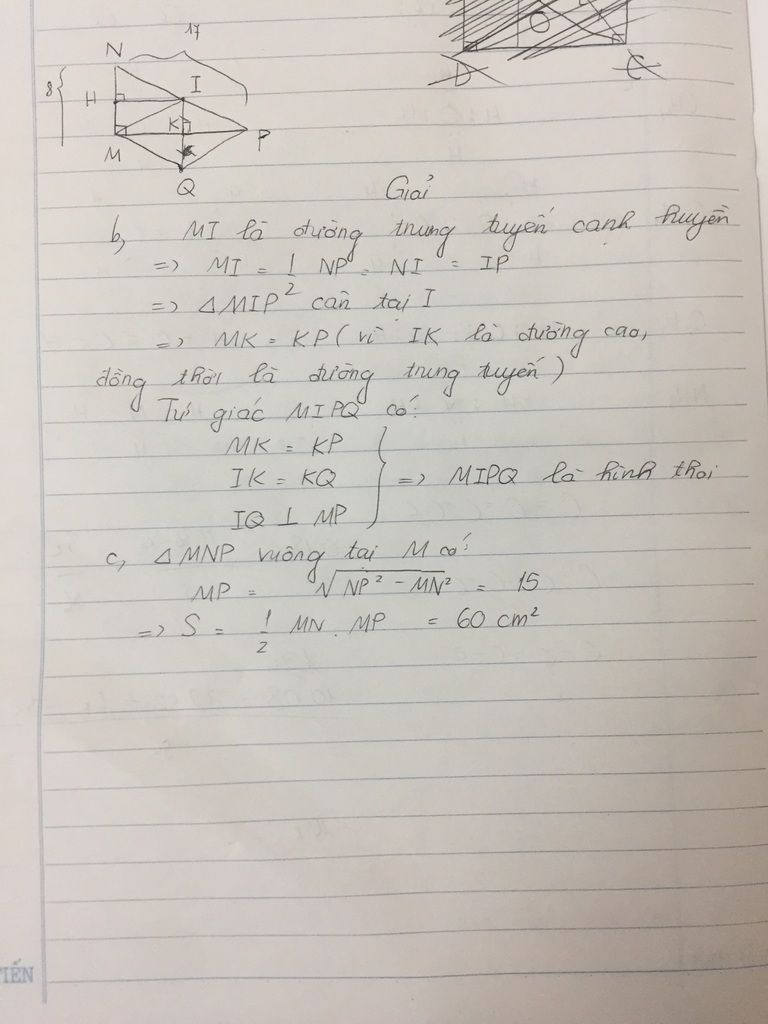 17
N
8
H
I
K
M
P
Q
D
C
O
Giải
b, MI là đường trung tuyến cạnh huyền
=> MI = 1/2 NP = NI = IP
=> △MIP cân tại I
=> MK = KP ( vì IK là đường cao,
đồng thời là đường trung tuyến )
Tứ giác MIPQ có:
MK = KP
IK = KQ } => MIPQ là hình thoi
IQ ⊥ MP
c, △MNP vuông tại M có:
MP = √NP² - MN² = 15
=> S = 1/2 MN . MP = 60 cm²
TIẾN